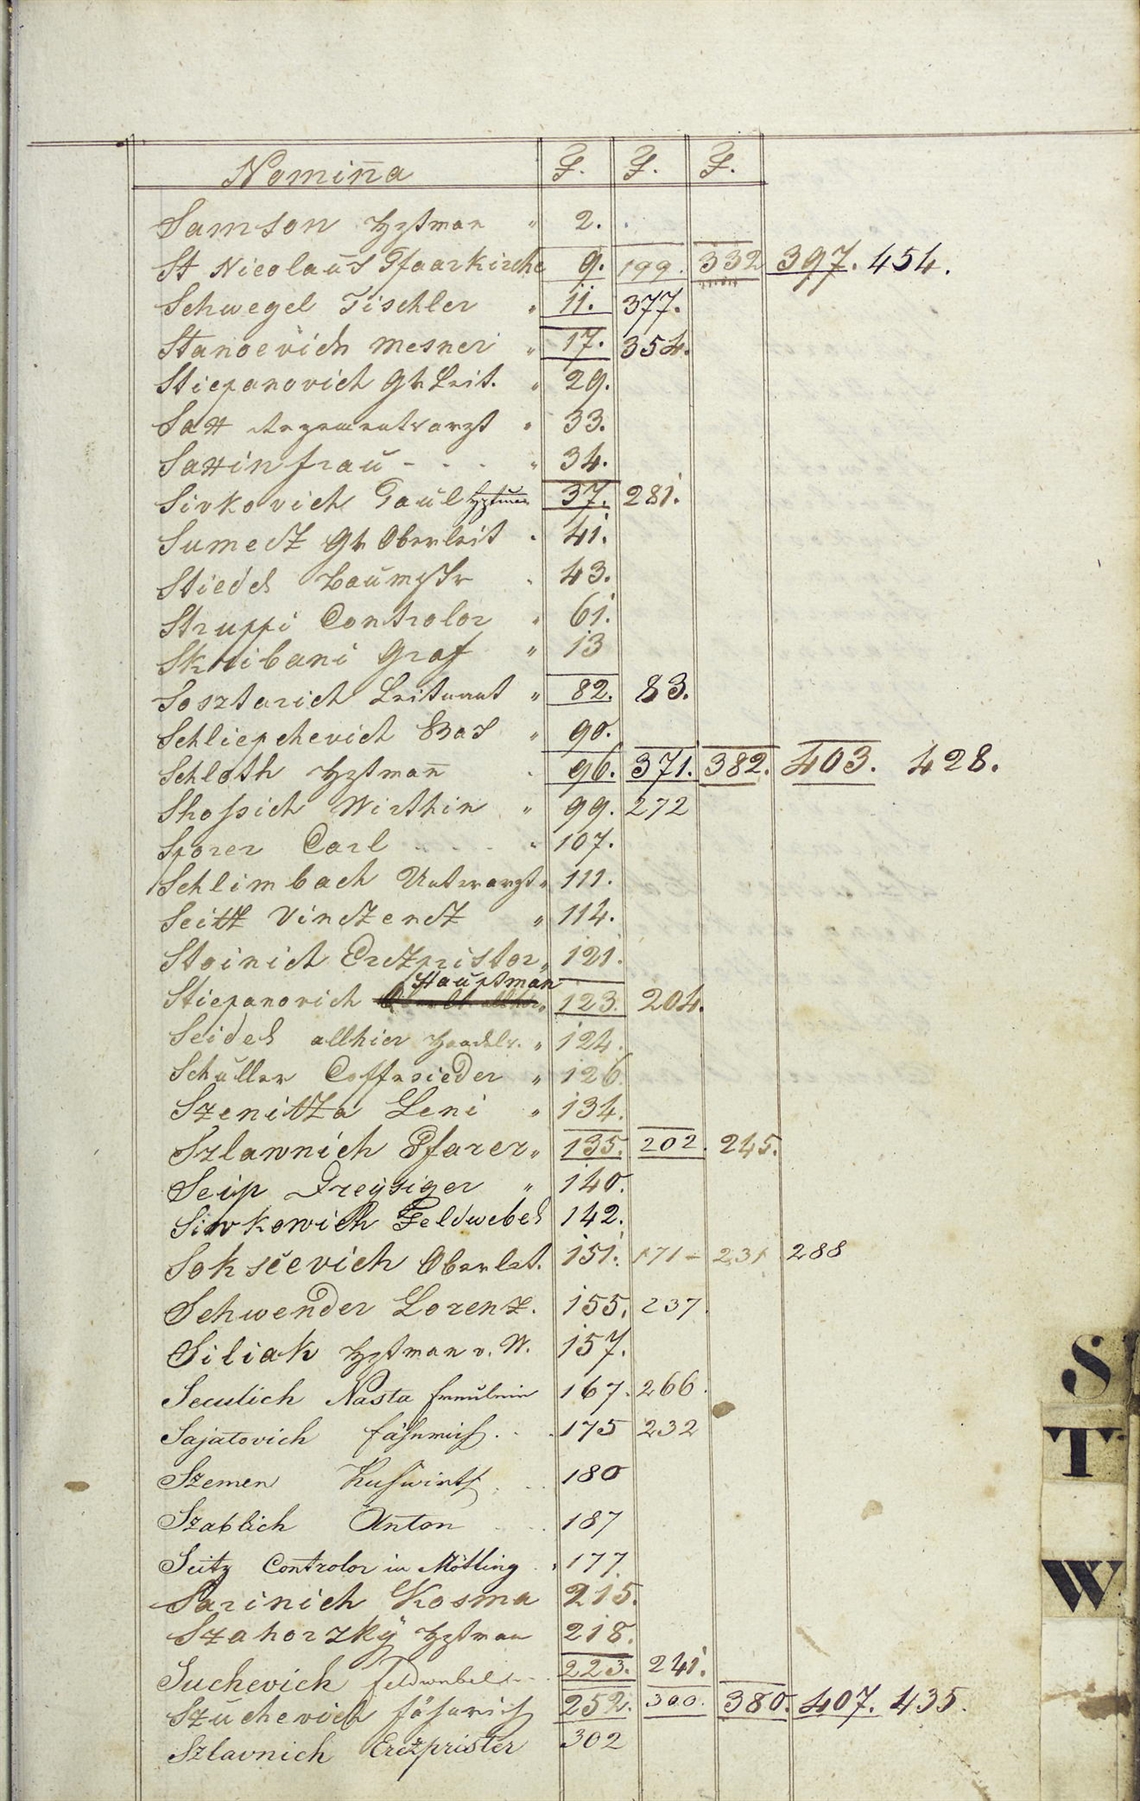 Nomina F. F. F.
Samson Hptman " 2.
St Nicolaus Pfaarkirche 9. 199. 332 397. 454.
Schwegel Tischler " 11. 377.
Stanoevich Mesner " 17. 354.
Stiepanovich Leit. " 29.
Satt Regementsarzt " 33.
Sattin frau - - - " 34.
Sivkovich Paul 37. 281.
Sumetz Oberleit " 41.
Stiedl Baumstr " 43.
Struppi Controlor " 61.
Skribani Graf " 13
Sosztarich Leitnant " 82. 83.
Schliepchevich Bas " 90.
Schloth Hptman " 96. 371. 382. 403. 428.
Shossich Wirthin " 99. 272
Sporer Carl - - - " 107.
Schlimbach Unterarzt " 111.
Seitz Vinctzenctz " 114.
Stoinich Erctzpristor " 121.
Hauptman
Stiepanovich 123. 204.
Seidel allhier Handels. " 124.
Schuller Coffesieder " 126.
Szenitza Leni " 134.
Szlavnich Pfarer " 135. 202. 245.
Seip Dreysiger " 140.
Sivkowich Feldwebel 142.
Sokscevich Oberlet. 151. 171 - 231 288
Schwender Lorenz. 155. 237.
Siliak Hptman v. W. 157.
Seculich Nasta freulein 167. 266.
Sajatovich fähnrich . . . 175 232
Szemen . . . 180
Szablich Anton . . . 187
Seitz Controlor in Mötling . " 177
Sarinich Kosma 215.
Szahorzky Hptman 218.
Suchevich feldwebel 223. 241.
Szuchevich fähnrich 252. 300. 380. 407. 435.
Szlavnich Erczprister 302
S
T
W